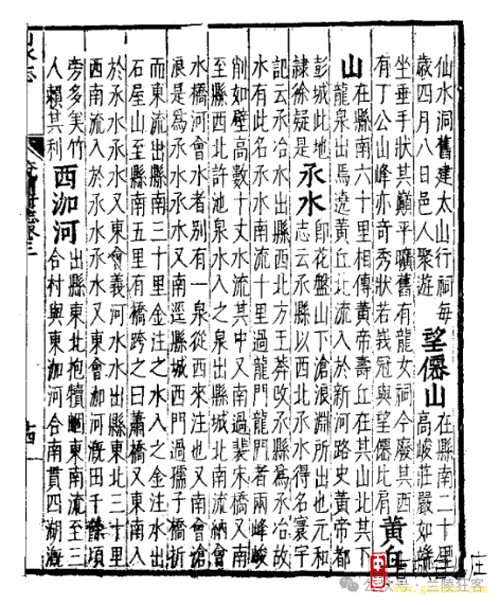 仙水洞舊建太山行祠每
歲四月八日邑人聚遊
望僊山
在縣南二十里
高峻莊嚴如端
坐垂手狀其巔平曠舊有龍女祠今廢其西
有丁公山峰亦奇秀狀若峩冠與望僊比肩
黃丘
山
在縣南六十里相傳黃帝壽丘在其山北其下
龍泉出焉遶黃丘北流入於新河路史黃帝都
彭城此地
隷徐疑是
承水
即花盤山下滄浪淵所出也元和
志云承縣以西北承水得名寰宇
記云承冶水出縣西北方王莽改承縣為承冶故
水有此名承水南流十里過龍門龍門者兩峰峻
削如壁高數十丈水流其中又南過裴宋橋又南
至縣西北許池泉水入之泉出縣城北南流納會
水橋河會水者別有一泉從西來注也又南會滄
浪是為承水承水又南逕縣城西門過孺子橋折
而東流出縣南三十里金注之水入之金注水出
石屋山至縣南五里有橋跨之曰蕭橋又東南入
於承水承水又東會義河水水出縣東北三十里
西南流入於承水承水又東會泇河溉田千餘頃
旁多美竹
人賴其利
西泇河
出縣東北抱犢崮東南流至三
合村與東泇河合南貫四湖溉
山水志
卷三
十四
兰陵狂客